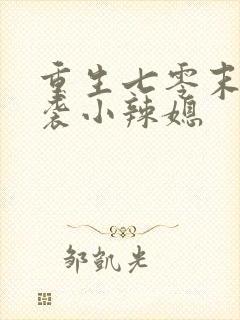 重生七零末
袭小辣媳
邹凯光